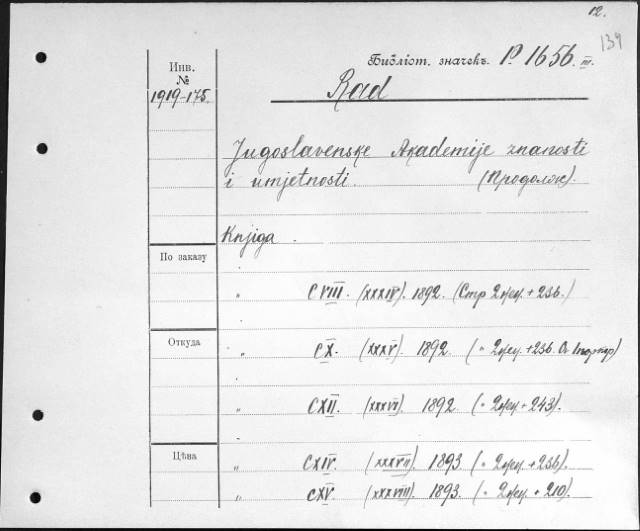 12.
139
Библіот. значекъ. P. 1656. III.
Инв.
№
1919-175.
Rad
Jugoslavenske Akademije znanosti
i umjetnosti. (Продолж).
Knjiga .
По заказу
" CVIII. (XXXIV). 1892. (Стр 2неу. + 236.)
Откуда
" CX. (XXXV). 1892. ( " 2неу. + 236.
" CXII. (XXXVI). 1892. ( " 2неу + 243).
Цѣна
" CXIV. (XXXVII). 1893. ( " 2неу. + 236).
" CXV. (XXXVIII). 1893. ( " 2неу. + 210).